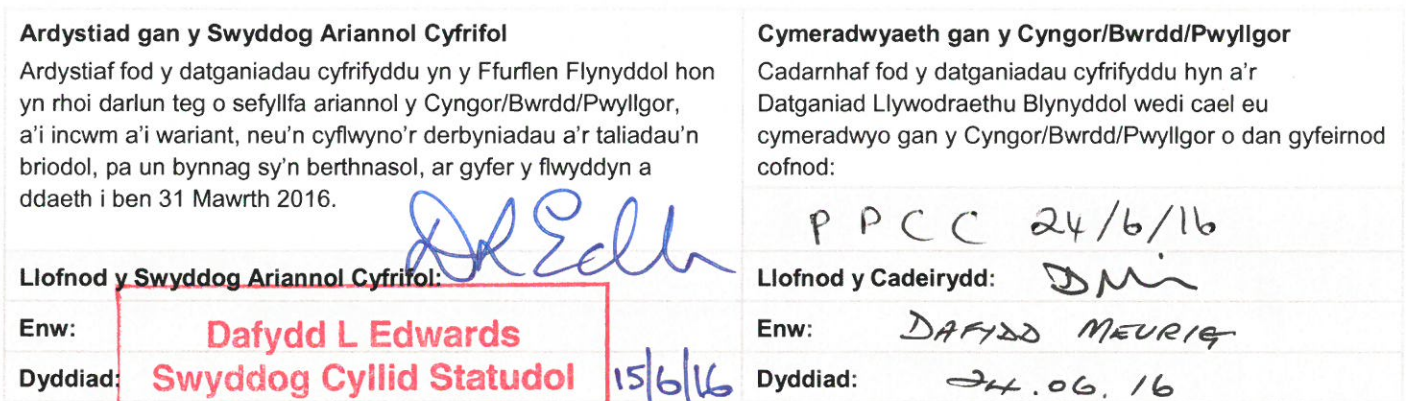 Ardystiad gan y Swyddog Ariannol Cyfrifol
Ardystiaf fod y datganiadau cyfrifyddu yn y Ffurflen Flynyddol hon
yn rhoi darlun teg o sefyllfa ariannol y Cyngor/Bwrdd/Pwyllgor,
a'i incwm a'i wariant, neu'n cyflwyno'r derbyniadau a'r taliadau'n
briodol, pa un bynnag sy'n berthnasol, ar gyfer y flwyddyn a
ddaeth i ben 31 Mawrth 2016.
Llofnod y Swyddog Ariannol Cyfrifol:
Enw: Dafydd L Edwards
Dyddiad: Swyddog Cyllid Statudol 15/6/16
Cymeradwyaeth gan y Cyngor/Bwrdd/Pwyllgor
Cadarnhaf fod y datganiadau cyfrifyddu hyn a'r
Datganiad Llywodraethu Blynyddol wedi cael eu
cymeradwyo gan y Cyngor/Bwrdd/Pwyllgor o dan gyfeirnod
cofnod:
PPCC 24/6/16
Llofnod y Cadeirydd:
Enw: DAFYDD MEURIG
Dyddiad: 24.06.16